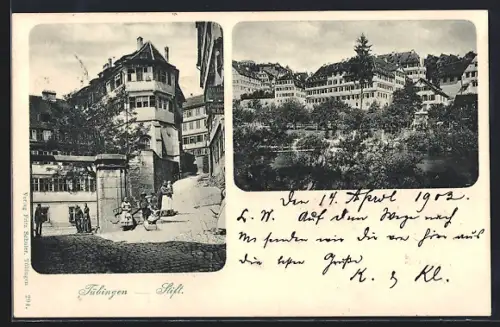 Den 14. April 1903.
L. W. Auf dem Wege nach
M senden wir dir von hier aus
die besten Grüße
K. & Kl.
Tübingen — Stift.
Verlag Fritz Schaler, Tübingen
294.